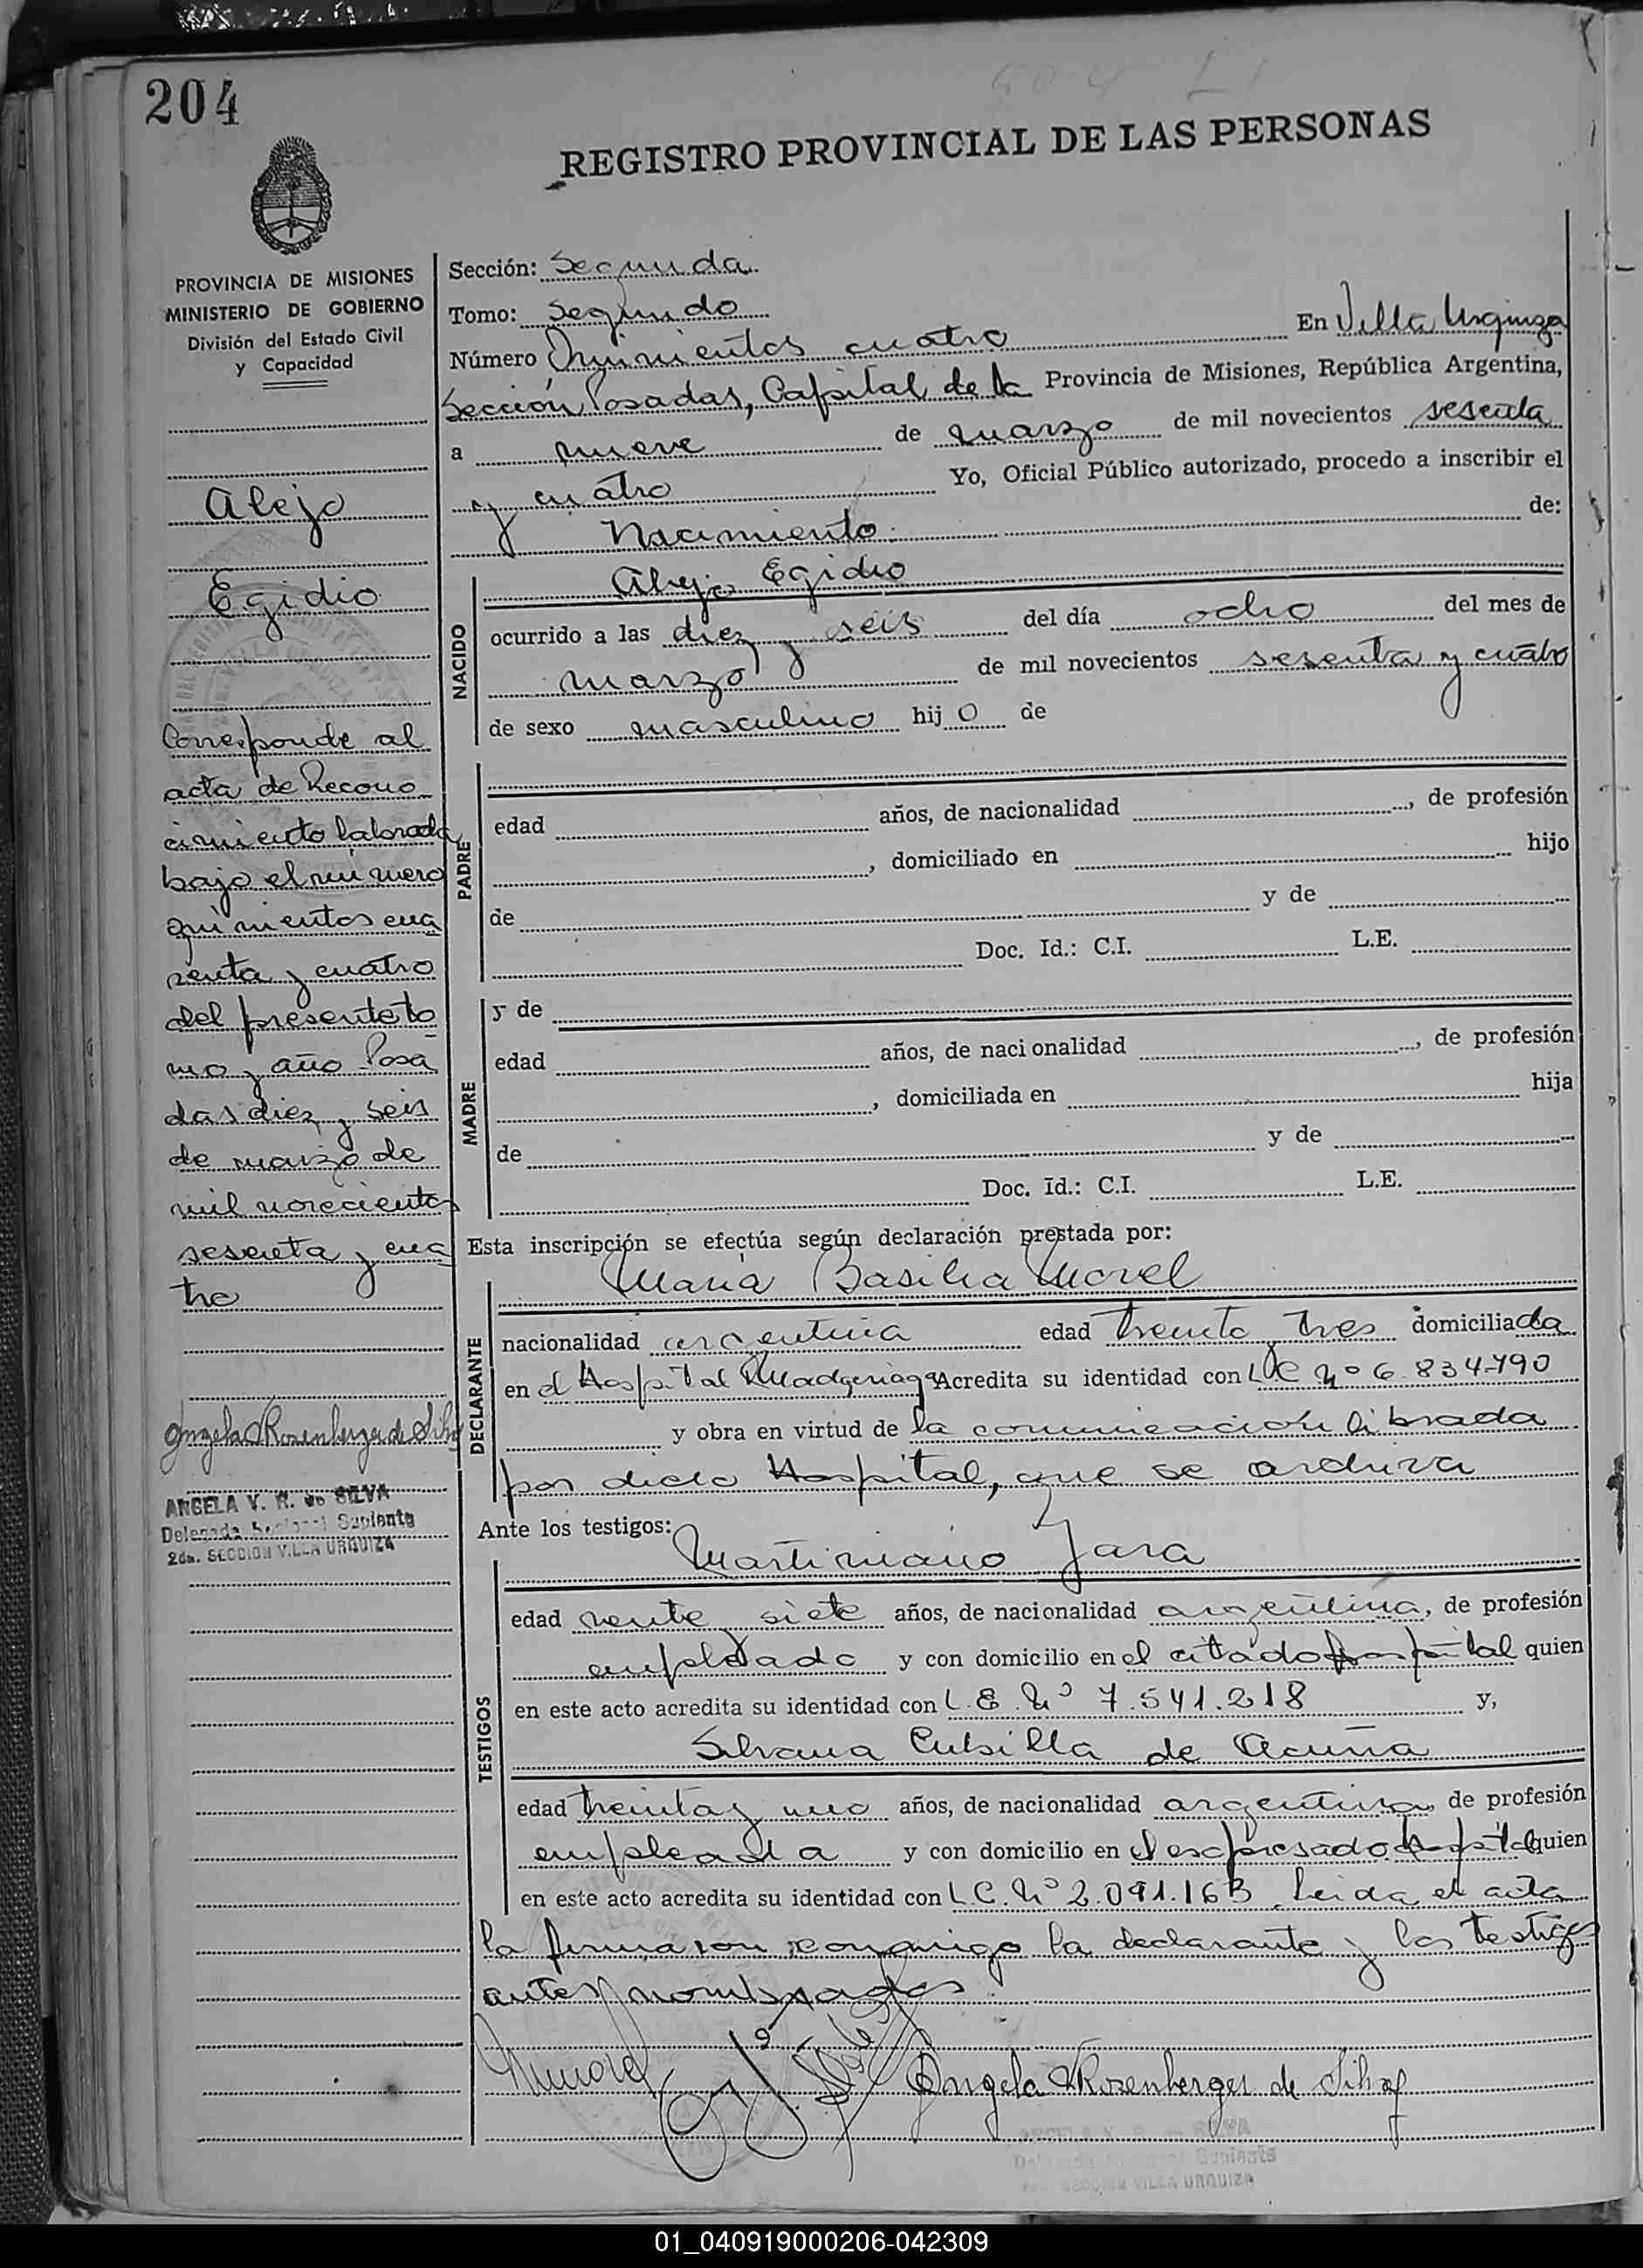 204
REGISTRO PROVINCIAL DE LAS PERSONAS
PROVINCIA DE MISIONES
MINISTERIO DE GOBIERNO
División del Estado Civil
y Capacidad
Alejo
Egidio
Corresponde al
acta de Recono
cimiento labrada
bajo el número
quinientos cua
renta y cuatro
del presente to
mo y año Posa
das diez y seis
de marzo de
mil novecientos
sesenta y cua
tro
Angela V Rosenberger de Silva
ANGELA V. R. de SILVA
Delegada Seccional Suplente
2da. SECCION VILLA URQUIZA
Sección: Segunda
Tomo: Segundo
Número Quinientos cuatro En Villa Urquiza
Sección Posadas, Capital de la Provincia de Misiones, República Argentina,
a nueve de marzo de mil novecientos sesenta
y cuatro Yo, Oficial Público autorizado, procedo a inscribir el
Nacimiento de:
NACIDO
Alejo Egidio
ocurrido a las diez y seis del día ocho del mes de
marzo de mil novecientos sesenta y cuatro
de sexo masculino hijo de
PADRE
edad años, de nacionalidad , de profesión
, domiciliado en hijo
de y de
Doc. Id.: C.I. L.E.
MADRE
y de
edad años, de naci onalidad , de profesión
, domiciliada en hija
de y de
Doc. Id.: C.I. L.E.
Esta inscripción se efectúa según declaración prestada por:
DECLARANTE
María Basilia Morel
nacionalidad argentina edad treinta y tres domiciliada
en el Hospital Madariaga Acredita su identidad con L C Nº 6.834.790
y obra en virtud de la comunicación librada
por dicho Hospital, que se archiva
Ante los testigos:
TESTIGOS
Martiniano Jara
edad veinte y siete años, de nacionalidad argentina, de profesión
empleado y con domicilio en el citado Hospital quien
en este acto acredita su identidad con L.E. Nº 7.541.218 y,
Silvana Cubilla de Acuña
edad treinta y uno años, de nacionalidad argentina, de profesión
empleada y con domicilio en el expresado Hospital quien
en este acto acredita su identidad con L.C. Nº 2.091.163 Leida el acta
la firmaron conmigo la declarante y los testigos
antes nombrados
Mmorel
Angela V Rosenberger de Silva
ANGELA V. R. de SILVA
Delegada Suplente
SECCION VILLA URQUIZA
01_040919000206-042309